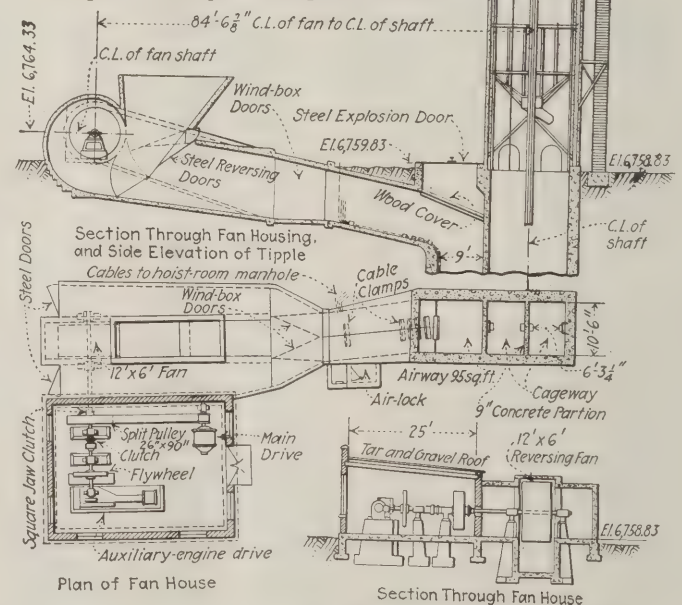 84'-6 3/8" C.L. of fan to C.L. of shaft
El. 6,764.33
C.L. of fan shaft
Wind-box
Doors
Steel Explosion Door
El. 6,759.83
El. 6,758.83
Steel Reversing
Doors
Wood Cover
C.L. of
shaft
9'
Section Through Fan Housing,
and Side Elevation of Tipple
Steel Doors
Cables to hoist-room manhole
Cable
Clamps
Wind-box
Doors
10'6"
12'x6' Fan
Airway 95sq.ft.
6'3 1/4"
Air-lock
Cageway
9" Concrete Partion
Square Jaw Clutch
Split Pulley
26"x90"
Clutch
Flywheel
Main
Drive
Auxiliary-engine drive
Plan of Fan House
25'
Tar and Gravel Roof
12'x6'
Reversing Fan
El. 6,758.83
Section Through Fan House